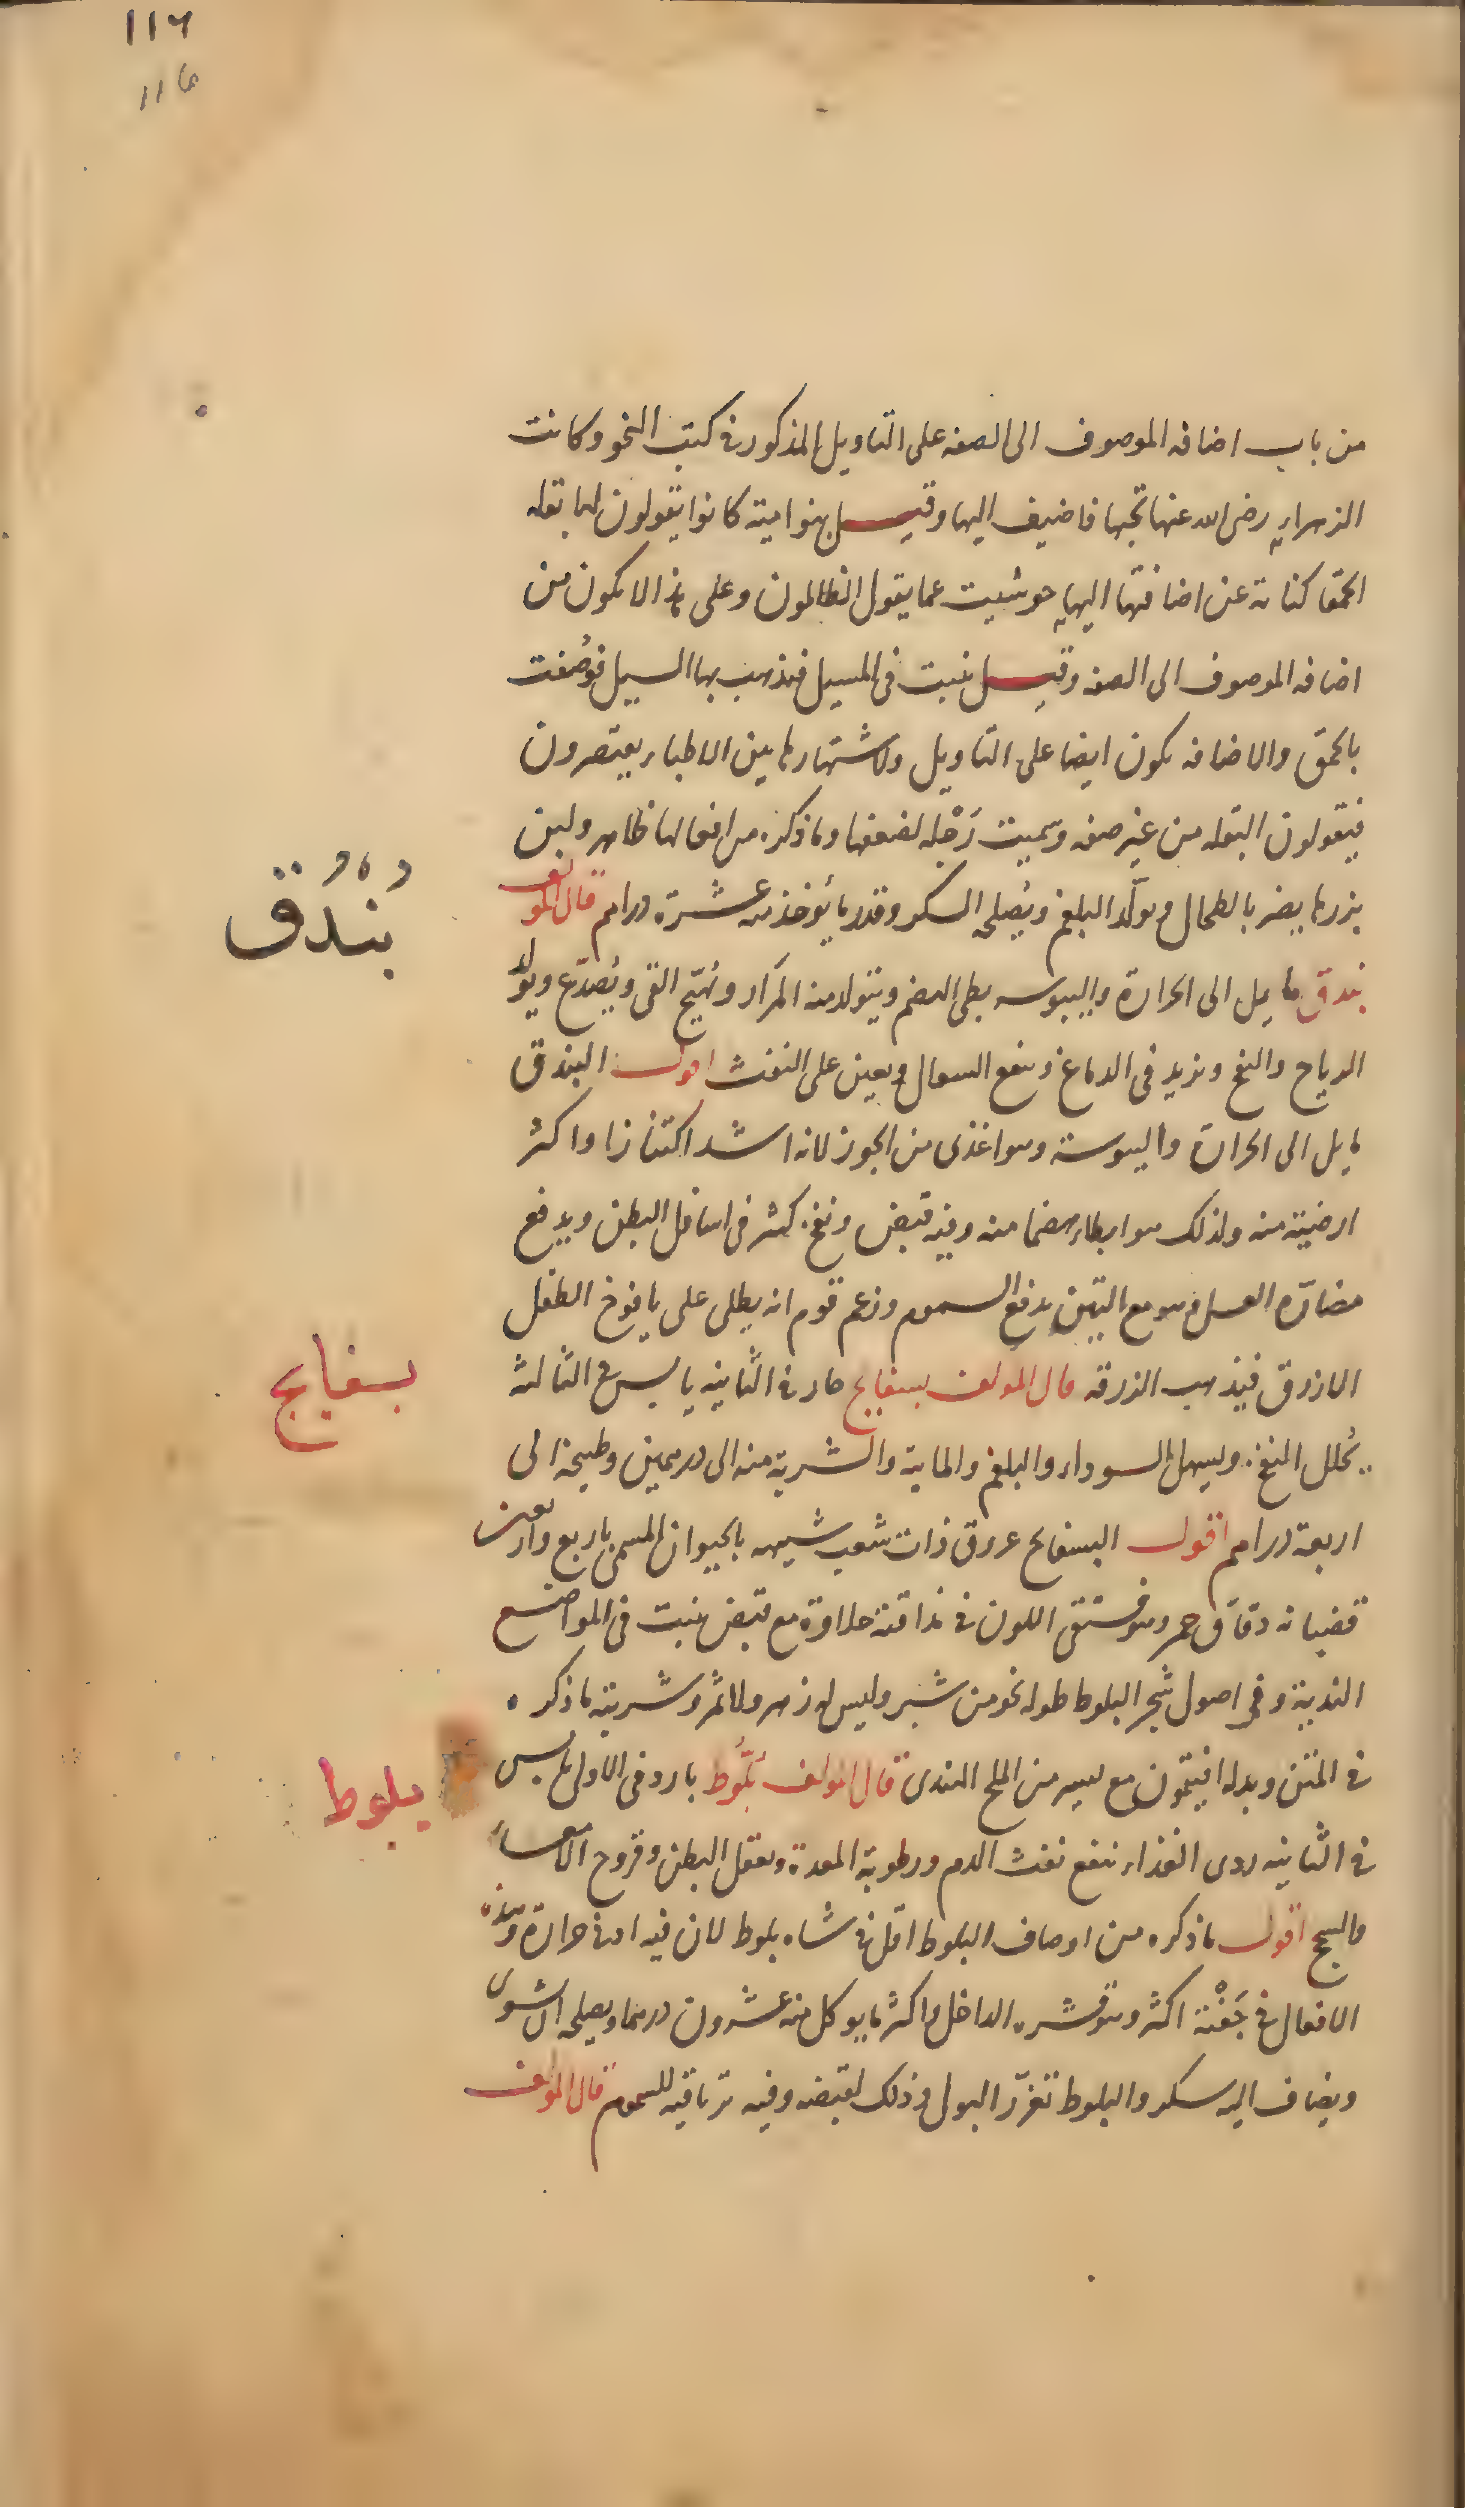 ١١٦
١١٦
من باب اضافه الموصوف الى الصفه على التاويل المذكور فى كتب النحو وكانت
الزهراء رضى الله عنها تحبها فاضيف اليها وقيل بنو امية كانوا يقولون لها بقله
الحمقا كناية عن اضافتها اليها حوشيت عما يقول الظالمون وعلى هذا لا يكون من
اضافه الموصوف الى الصفه وقيل تنبت فى المسيل فيذهب بها السيل فوُصفت
بالحمق والاضافه يكون ايضا على التاويل ولاشتهارها بين الاطباء يقتصرون
فيقولون البقله من غير صفه وسميت رَجْله لضعفها وما ذكره من افعالها ظاهر ولبن
بزرها يضر بالطحال ويولّد البلغم ويُصلحه السكر وقدر ما يُؤخذ منه عشرة دراهم قال المولف
بندق مايل الى الحرارة واليبوسه بطى الهضم ويتولد منه المرار ويُهيّج القى ويُصدّع ويولّد
الرياح والنفخ ويزيد فى الدماغ وينفع السعال ويعين على النفث اقول البندق
مايل الى الحرارة واليبوسة وهو اغذى من الجوز لانه اشد اكتنازا واكثر
ارضيته منه ولذلك هو ابطاء هضما منه وفيه قبض ونفخه يكثر فى اسافل البطن ويدفع
مضارّه العسل وهو مع التين يدفع السموم وزعم قوم انه يطلى على يافوخ الطفل
الازرق فيذهب الزرقه قال المولف بسفايج حار فى الثانيه يابس فى الثالثه
يُحلل النفخ ويسهل السوداء والبلغم والماية والشربة منه الى درهمين وطبيخه الى
اربعة دراهم اقول البسفايج عروق ذات شعب شبيهه بالحيوان المسمى باربع واربعين
قضبانه دقاق حمر وهو فستقى اللون فى مذاقته حلاوة مع قبض ينبت فى المواضع
النديه وفى اصول شجر البلوط طوله نحو من شبر وليس له زهر ولا ثمر وشربته ما ذكره
فى المتن وبدله افيتمون مع يسير من الملح الهندى قال المولف بَلّوط بارد فى الاولى يابس
فى الثانيه ردى الغذاء ينفع نفث الدم ورطوبة المعدة ويعقل البطن وقروح الامعاء
والسحج اقول ما ذكره من اوصاف البلوط اقل فى شاه بلوط لان فيه ادنى حرارة وهذه
الافعال فى جَفْته اكثر وهو قشره الداخل واكثر ما يوكل منه عشرون درهما ويصلحه ان شوى
ويضاف اليه سكر والبلوط تغزر البول وذلك لقبضه وفيه ترياقيه للسموم قال المولف
بُندُق
بسفايج
بلوط